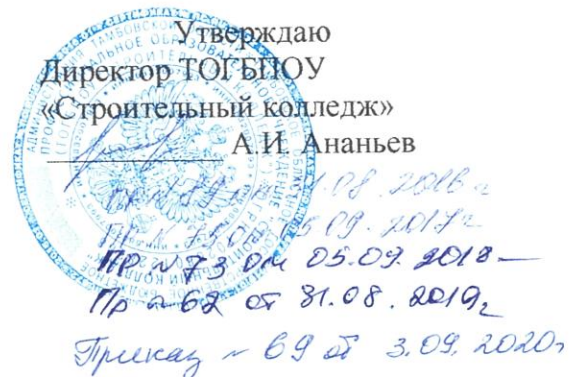 Утверждаю
Директор ТОГБПОУ
«Строительный колледж»
А.И. Ананьев
08. 2016 г
09. 2017 г
Пр № 73 от 05.09. 2018
Пр № 62 от 31.08. 2019г
Приказ № 69 от 3.09.2020г